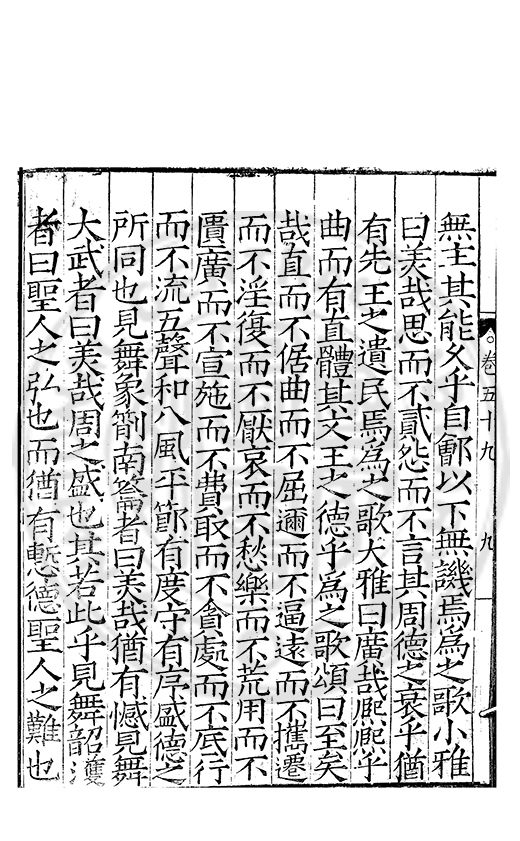 卷五十九　九
無主其能久乎自鄶以下無譏焉為之歌小雅
曰美哉思而不貳怨而不言其周德之衰乎猶
有先王之遺民焉為之歌大雅曰廣哉熈熈乎
曲而有直體其文王之德乎為之歌頌曰至矣
哉直而不倨曲而不屈邇而不逼遠而不攜遷
而不淫復而不厭哀而不愁樂而不荒用而不
匱廣而不宣施而不費取而不貪處而不底行
而不流五聲和八風平節有度守有序盛德之
所同也見舞象箾南籥者曰美哉猶有憾見舞
大武者曰美哉周之盛也其若此乎見舞韶濩
者曰聖人之弘也而猶有慙德聖人之難也